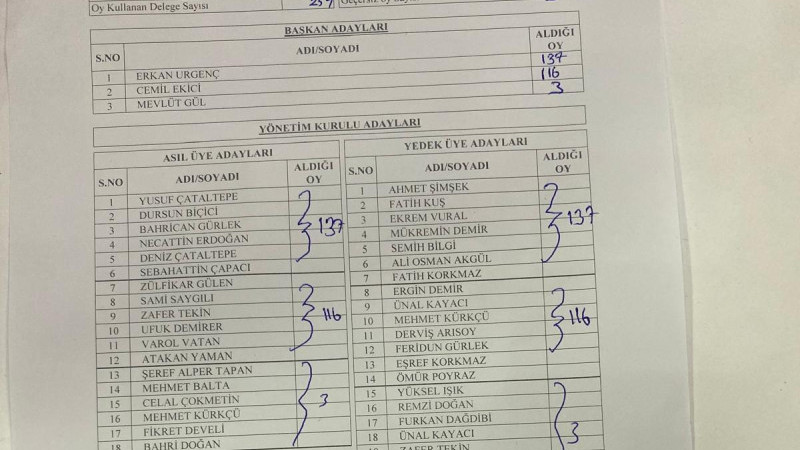 Oy Kullanan Delege Sayısı
BAŞKAN ADAYLARI
S.NO ADI/SOYADI ALDIĞI OY
1 ERKAN URGENÇ 137
2 CEMİL EKİCİ 116
3 MEVLÜT GÜL 3
YÖNETİM KURULU ADAYLARI
ASIL ÜYE ADAYLARI
S.NO ADI/SOYADI ALDIĞI OY
1 YUSUF ÇATALTEPE
2 DURSUN BİÇİCİ
3 BAHRİCAN GÜRLEK 137
4 NECATTİN ERDOĞAN
5 DENİZ ÇATALTEPE
6 SEBAHATTİN ÇAPACI
7 ZÜLFİKAR GÜLEN
8 SAMİ SAYGILI
9 ZAFER TEKİN 116
10 UFUK DEMİRER
11 VAROL VATAN
12 ATAKAN YAMAN
13 ŞEREF ALPER TAPAN
14 MEHMET BALTA
15 CELAL ÇOKMETİN 3
16 MEHMET KÜRKÇÜ
17 FİKRET DEVELİ
18 BAHRİ DOĞAN
YEDEK ÜYE ADAYLARI
S.NO ADI/SOYADI ALDIĞI OY
1 AHMET ŞİMŞEK
2 FATİH KUŞ
3 EKREM VURAL 137
4 MÜKREMİN DEMİR
5 SEMİH BİLGİ
6 ALİ OSMAN AKGÜL
7 FATİH KORKMAZ
8 ERGİN DEMİR
9 ÜNAL KAYACI
10 MEHMET KÜRKÇÜ 116
11 DERVİŞ ARISOY
12 FERİDUN GÜRLEK
13 EŞREF KORKMAZ
14 ÖMÜR POYRAZ
15 YÜKSEL IŞIK
16 REMZİ DOĞAN
17 FURKAN DAĞDİBİ
18 ÜNAL KAYACI 3
ZAFER TEKİN